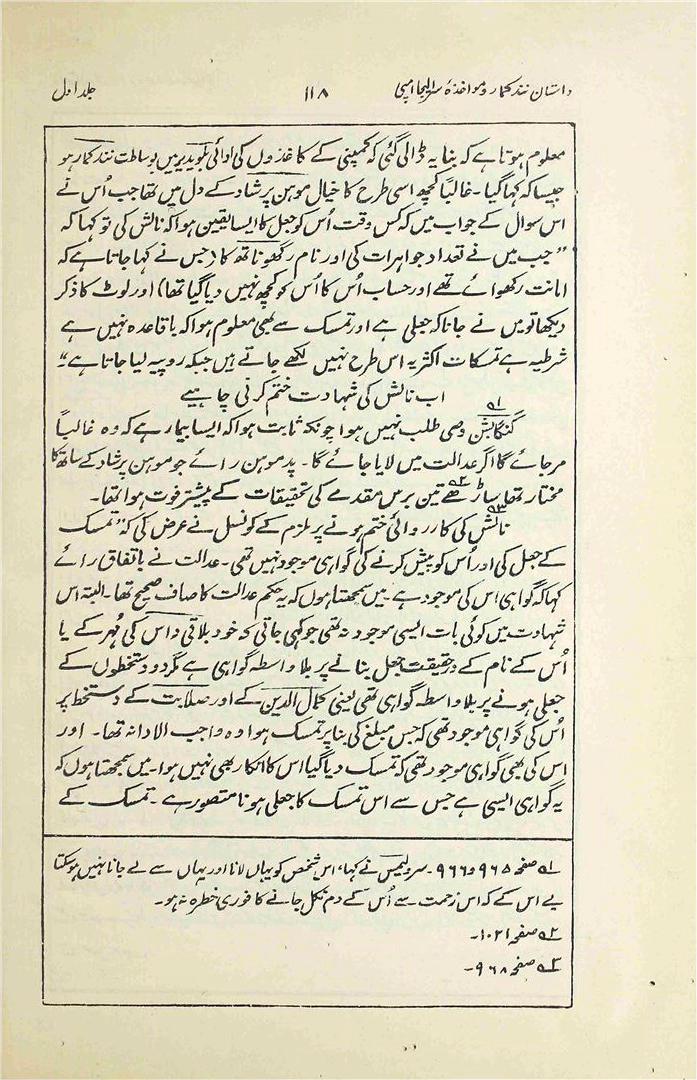 داستان نندکمار و مواخذهٔ سرالیجا امپی ۱۱۸ جلد اول
معلوم ہوتا ہے کہ بنا یہ ڈالی گئی کہ کمپنی کے کاغذوں کی ادائی بلویدیر میں بوساطت نندکمار ہو
جیسا کہ کہا گیا۔ غالباً کچھ اسی طرح کا خیال موہن پرشاد کے دل میں تھا جب اُس نے
اس سوال کے جواب میں کہ کس وقت اُس کو جعل کا ایسا یقین ہوا کہ نالش کی تو کہا کہ
”جب میں نے تعداد جواہرات کی اور نام رگھوناتھ کا (جس نے کہا جاتا ہے کہ
امانت رکھوائے تھے اور حساب اُس کا اُس کو کچھ نہیں دیا گیا تھا) اور لوٹ کا ذکر
دیکھا تو میں نے جانا کہ جعلی ہے اور تمسک سے بھی معلوم ہوا کہ باقاعدہ نہیں ہے
شرطیہ ہے تمسکات اکثر یہ اس طرح نہیں لکھے جاتے ہیں جبکہ روپیہ لیا جاتا ہے“۔
اب نالش کی شہادت ختم کرنی چاہیے
گنگابشن وصی طلب نہیں ہوا چونکہ ثابت ہوا کہ ایسا بیمار ہے کہ وہ غالباً
مرجائے گا اگر عدالت میں لایا جائے گا۔ پدموہن رائے جو موہن پرشاد کے ساتھ کا
مختار تھا ساڑھے تین برس مقدمے کی تحقیقات کے پیشتر فوت ہوا تھا۔
نالش کی کارروائی ختم ہونے پر ملزم کے کونسل نے عرض کی کہ ”تمسک
کے جعل کی اور اُس کو پیش کرنے کی گواہی موجود نہیں تھی۔ عدالت نے باتفاق رائے
کہا کہ گواہی اس کی موجود ہے۔ میں سمجھتا ہوں کہ یہ حکم عدالت کا صاف صحیح تھا۔ البتہ اس
شہادت میں کوئی بات ایسی موجود نہ تھی جو کہی جاتی کہ خود بلاقی داس کی مُہر کے یا
اُس کے نام کے درحقیقت جعل بنانے پر بلاواسطہ گواہی ہے مگر دو دستخطوں کے
جعلی ہونے پر بلاواسطہ گواہی تھی یعنی کمال الدین کے اور صلابت کے دستخط پر
اُس کی گواہی موجود تھی کہ جس مبلغ کی بنا پر تمسک ہوا وہ واجب الادا نہ تھا۔ اور
اس کی بھی گواہی موجود تھی کہ تمسک دیا گیا اس کا انکار بھی نہیں ہوا۔ میں سمجھتا ہوں کہ
یہ گواہی ایسی ہے جس سے اس تمسک کا جعلی ہونا متصور ہے۔ تمسک کے
۱ صفحہ ۹۶۵ و ۹۶۶۔ سرولیمس نے کہا، اس شخص کو یہاں لانا اور یہاں سے لے جانا نہیں ہوسکتا
بے اس کے کہ اس زحمت سے اُس کے دم نکل جانے کا فوری خطرہ نہ ہو۔
۲ صفحہ ۱۰۲۱۔
۳ صفحہ ۹۶۸۔